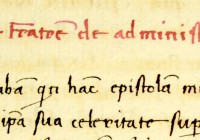 fratrē de adminis
bam qn hac epistolam m
ipa sua celeritate sup